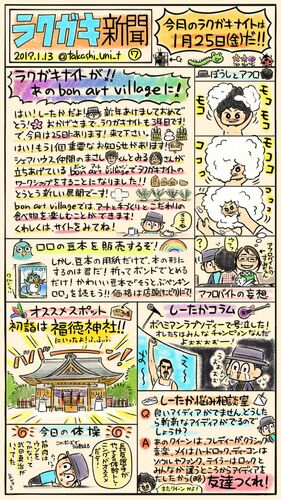 ラクガキ新聞
2019.1.13 @takashi_uni_t ⑰
今回のラクガキナイトは
1月25日(金)だ!!
ラクガキナイトが!!
あの bon art villageに!
はい!したーかだよ!新年あけましておめで
とう!おかげさまで、ラクガキナイトも3周目です!
で、今月25日あります!来て下さい。
はい!もう1個重要なお知らせがあります!
シェアハウス仲間のまさしくんとみるさんが
立ちあげているbon art villageでラクガキナイトの
ワークショップをすることになりました!!
とうとう新しい展開です!!
bon art villageではアートと手づくりとこだわりの
食べ物を楽しむことができます!
くわしくは、サイトをみてね!
ぼうしとアフロ
モコ
モコ
アフロバイトの妄想
ロロの豆本を販売するぞ!
しかし、豆本の用紙だけで、本の形に
するのは君だ!折ってボンドでとめる
だけ!かわいい豆本で「もうとぶペンギン
ロロ」を読もう!!価格は店頭にて
オススメスポット
初詣は福徳神社!!
にいったよ!ふふふ
したーかコラム
ボヘミアンラプソディーで号泣した!
オレたちはみんなチャンピョンなんだ
よぉぉぉぉー!
今日の体操
したーか悩み相談室
Q 良いアイディアがでません。どうしたら
斬新なアイディアがでるので
しょうか?
A あのクイーンは、フレディがクラシック
音楽、メイはハードロック、ディーコンは
ソウルとファンク、テイラーはロックと
みんなが違うところからアイディアを
だしたから 友達つくれ!